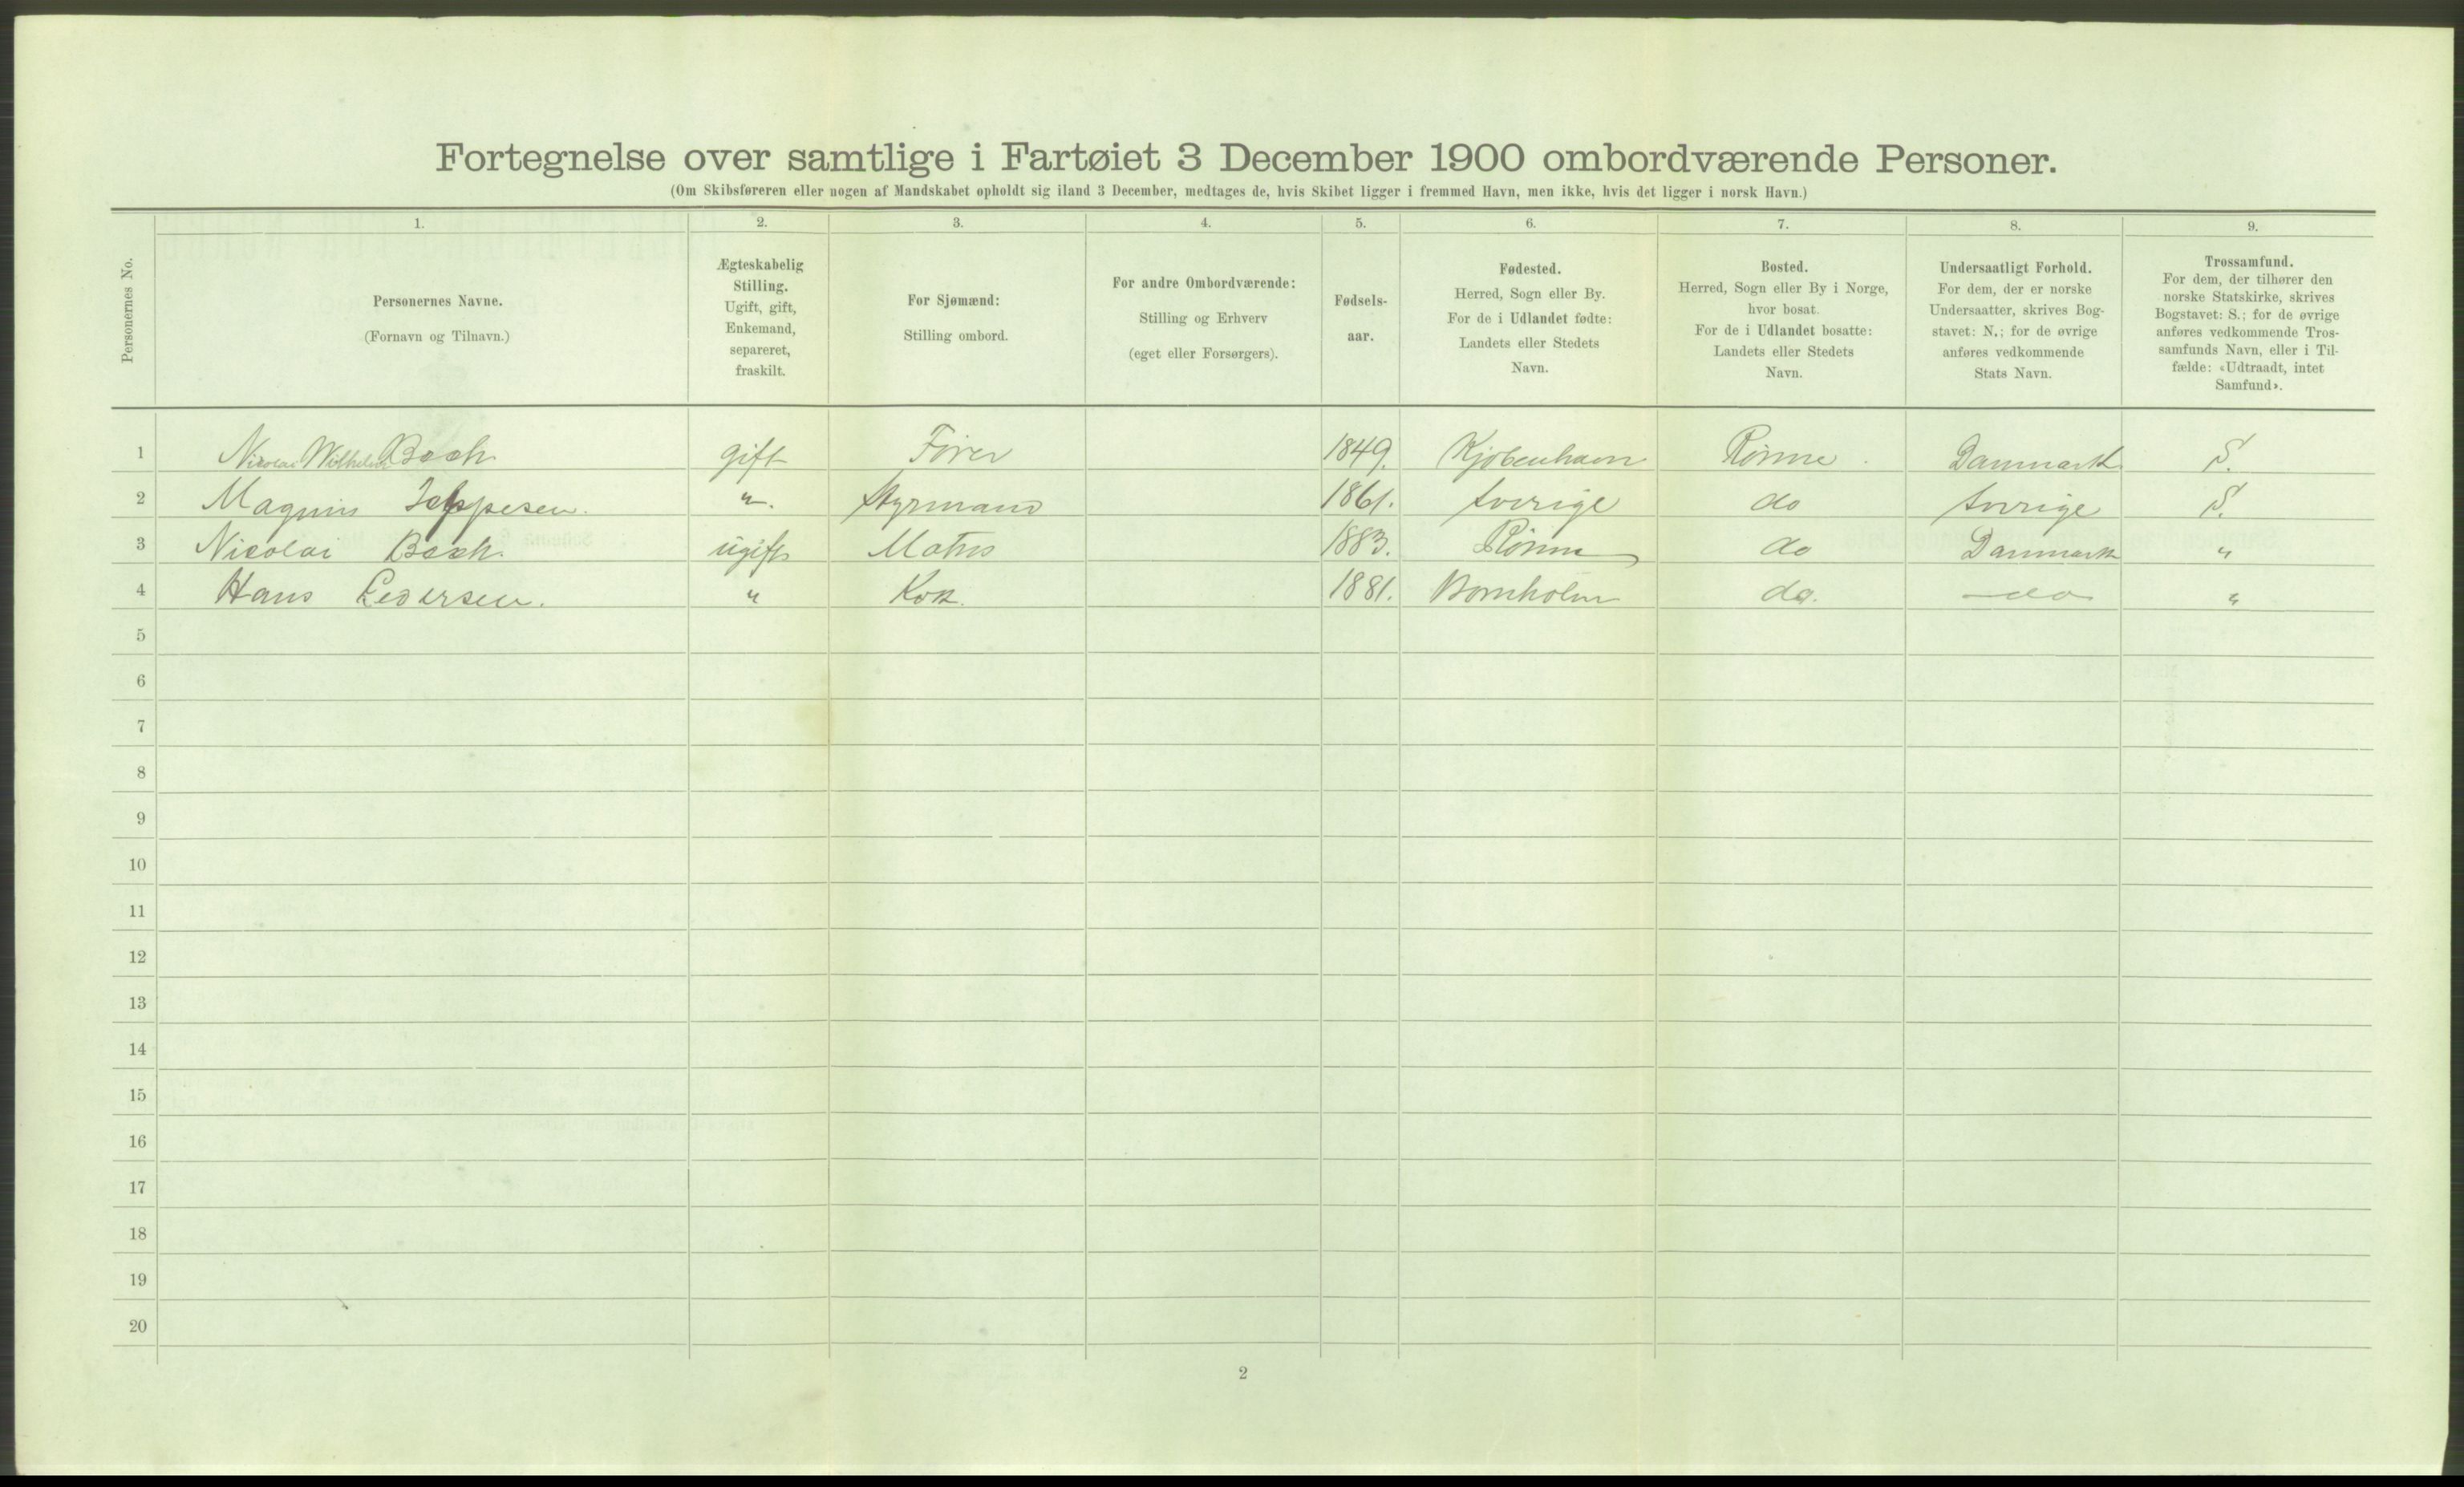 Fortegnelse over samtlige i Fartøiet 3 December 1900 ombordværende Personer.
(Om Skibsføreren eller nogen af Mandskabet opholdt sig iland 3 December, medtages de, hvis Skibet ligger i fremmed Havn, men ikke, hvis det ligger i norsk Havn.)
Personernes No.
1. 2. 3. 4. 5. 6. 7. 8. 9.
Personernes Navne.
(Fornavn og Tilnavn.)
Ægteskabelig
Stilling.
Ugift, gift,
Enkemand,
separeret,
fraskilt.
For Sjømænd:
Stilling ombord.
For andre Ombordværende:
Stilling og Erhverv
(eget eller Forsørgers).
Fødsels-
aar.
Fødested.
Herred, Sogn eller By.
For de i Udlandet fødte:
Landets eller Stedets
Navn.
Bosted.
Herred, Sogn eller By i Norge,
hvor bosat.
For de i Udlandet bosatte:
Landets eller Stedets
Navn.
Undersaatligt Forhold.
For dem, der er norske
Undersaatter, skrives Bog-
stavet: N.; for de øvrige
anføres vedkommende
Stats Navn.
Trossamfund.
For dem, der tilhører den
norske Statskirke, skrives
Bogstavet: S.; for de øvrige
anføres vedkommende Tros-
samfunds Navn, eller i Til-
fælde: «Udtraadt, intet
Samfund».
1 Nicolai Wilhelm Bech gift Fører 1849. Kjøbenhavn Rønne Danmark S.
2 Magnus Jeppesen. " Styrmand 1861. Sverige do Sverige S.
3 Nicolai Bech. ugift Matros 1883. Rønne do Danmark "
4 Hans Pedersen. " Kok 1881. Bornholm do. do "
5
6
7
8
9
10
11
12
13
14
15
16
17
18
19
20
2